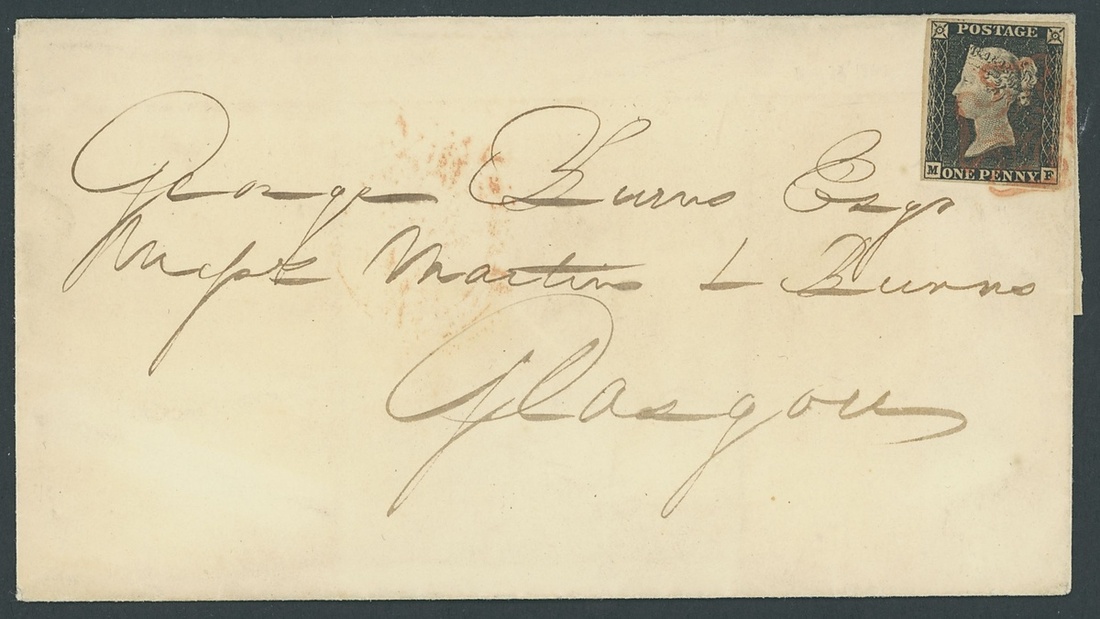 POSTAGE
M ONE PENNY F
George Burns Esqr
Messrs Martins & Burns
Glasgow